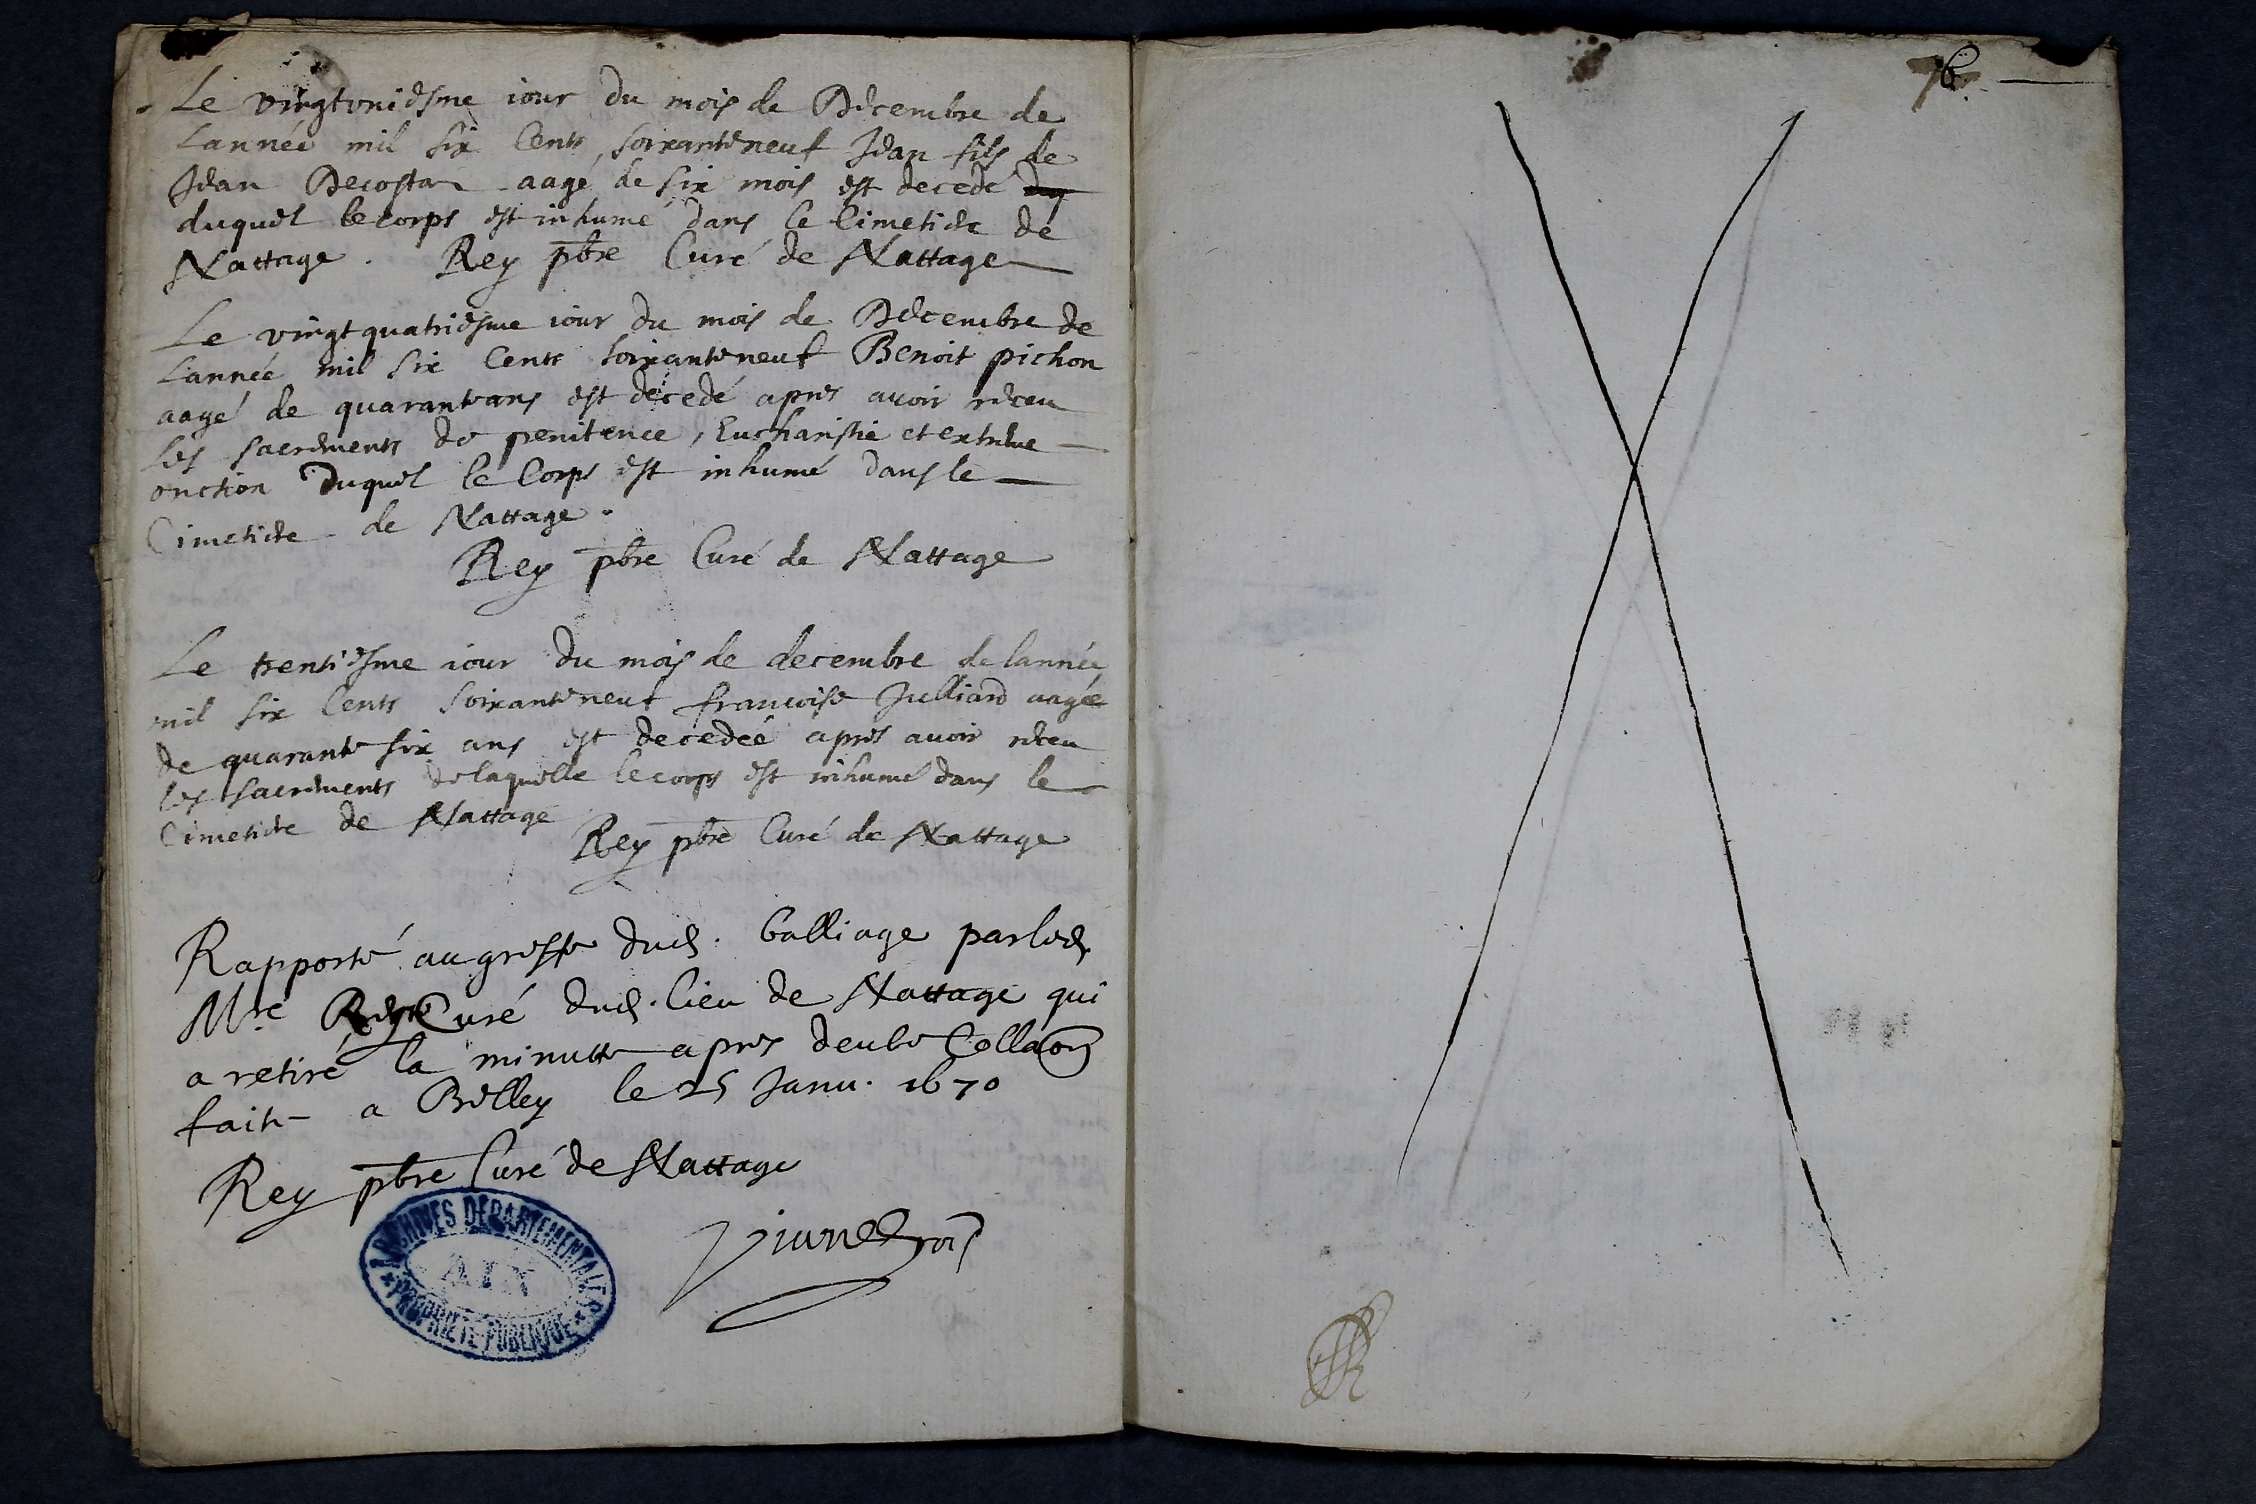 Le vingtuniesme iour du mois de Decembre de
Lannée mil six Cents soixanteneuf Jean fils de
Jean Decosta aagé de six mois est decedé
duquel le corps est inhumé dans le Cimetiere de
Nattage. Rey pbre Curé de Nattage
Le vingtquatriesme iour du mois de Decembre de
Lannée mil six Cents soixanteneuf Benoit pichon
aagé de quarante ans est decedé apres avoir receu
les sacrements de penitence, Eucharistie et extreme
onction Duquel le Corps est inhumé dans le
Cimetiere de Nattage.
Rey pbre Curé de Nattage
Le trentiesme iour du mois de decembre de lannée
mil six Cents soixanteneuf francoise Julliard aagée
de quarante six ans est decedée apres avoir receu
les sacrements de laquelle le corps est inhumé dans le
Cimetiere de Nattage
Rey pbre Curé de Nattage
Rapporté au greffe dud. balliage par led.
Mre Rey Curé dud. lieu de Nattage qui
a retiré la minutte apres deube Collaon
faite a Belley le 25 Janv. 1670
Rey pbre Curé de Nattage
ARCHIVES DEPARTEMENTALES
AIN
PROPRIETE PUBLIQUE
76.